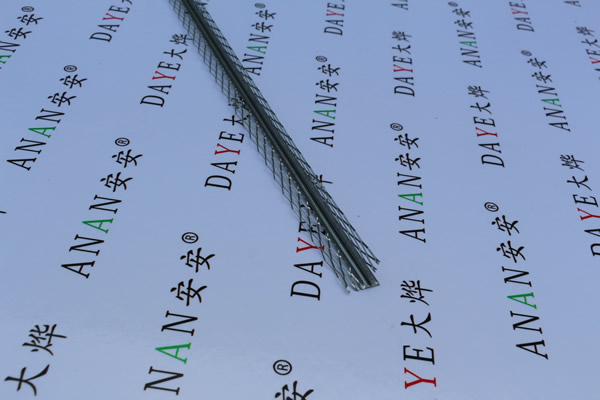 安安®
ANAN安安®
大烨
DAYE大
ANAN安安®
DAYE大烨
NAN安安®
ANAN安安®
DAYE大
安®
DAYE
ANAN安安®
DAYE
DAYE大烨
ANAN安安®
YE大烨
ANAN安安®
DAYE大烨
ANAN安安®
DAYE
ANAN安安®
DAYE大烨